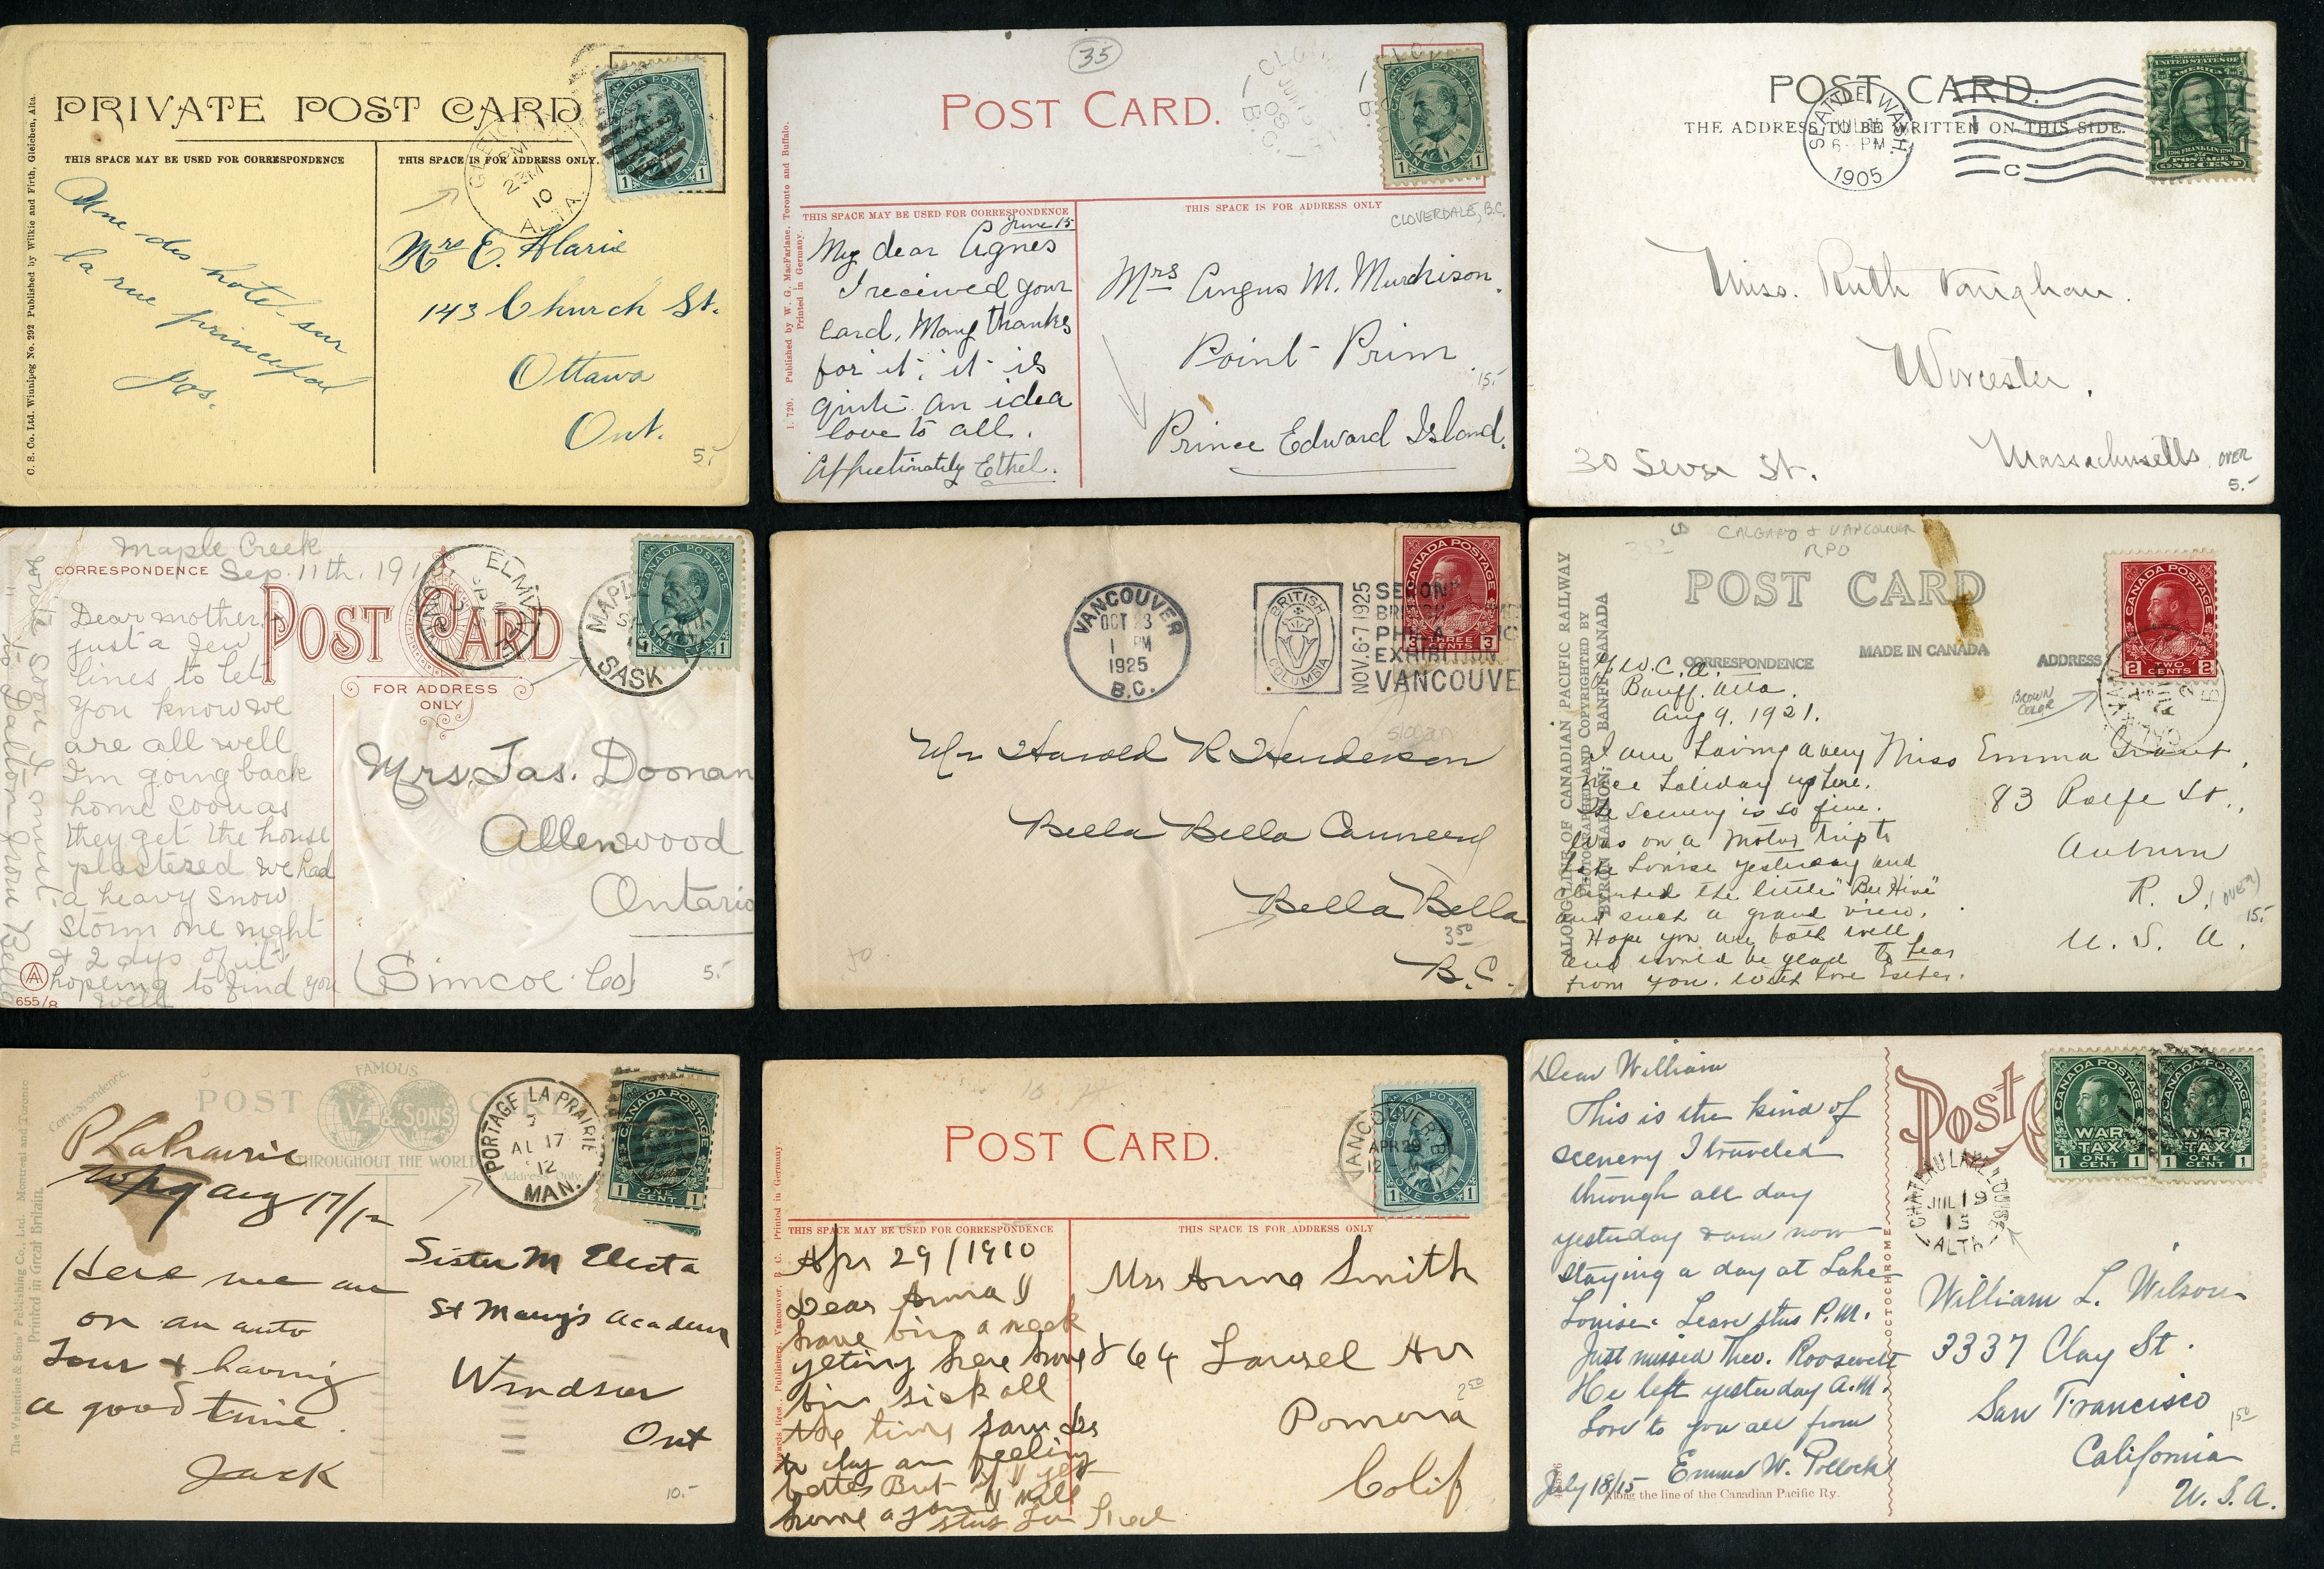 PRIVATE POST CARD
THIS SPACE MAY BE USED FOR CORRESPONDENCE
THIS SPACE IS FOR ADDRESS ONLY.
C. S. Co. Ltd. Winnipeg No. 292 Published by Wilkie and Firth, Gleichen, Alta.
CANADA POSTAGE
ONE CENT
1 1
23 M
10
ALTA.
Une des hotel sur
la rue principal
Jos.
Mrs E. Alarie
143 Church St.
Ottawa
Ont.
5.-
35
POST CARD.
CANADA POSTAGE
ONE CENT
1 1
B.C.
THIS SPACE MAY BE USED FOR CORRESPONDENCE
THIS SPACE IS FOR ADDRESS ONLY
CLOVERDALE, B.C.
I. 720. Published by W. G. MacFarlane. Toronto and Buffalo.
Printed in Germany.
June 15
My dear Agnes
I received your
card. Many thanks
for it; it is
quite an idea
love to all.
Affectinately Ethel.
Mrs Angus M. Murchison.
Point Prim
15.-
Prince Edward Island.
POST CARD.
THE ADDRESS TO BE WRITTEN ON THIS SIDE.
SEATTLE, WASH.
6 - PM
1905
C
UNITED STATES OF
AMERICA
FRANKLIN
POSTAGE
ONE CENT
Miss. Ruth Vaughan.
Worcester,
Massachusetts
30 Sever St.
OVER
5.-
Maple Creek
CORRESPONDENCE
Sep. 11th, 191
POST CARD
FOR ADDRESS
ONLY
ELMVALE
ONT
MAPLE
SASK
CANADA POSTAGE
ONE CENT
1
Dear mother,
just a few
lines to let
you know we
are all well
I'm going back
home soon as
they get the house
plastered we had
a heavy snow
storm one night
& 2 days of it
hopeing to find you
well
write soon I must
to Dalton from Bella
A
655/8
Mrs. Jas. Doonan
Allenwood
Ontario
(Simcoe Co)
5.-
VANCOUVER
OCT 23
1 PM
1925
B.C.
BRITISH
COLUMBIA
NOV. 6-7 1925
EXHIBITION
VANCOUVE
CANADA POSTAGE
THREE
CENTS
3 3
slogan
Mr Harold R Henderson
Bella Bella Cannery
Bella Bella
3 50
B.C.
CALGARY & VANCOUVER
RPO
POST CARD
CORRESPONDENCE
MADE IN CANADA
ADDRESS
ALONG LINE OF CANADIAN PACIFIC RAILWAY
PHOTOGRAPHED AND COPYRIGHTED BY
BYRON HARMON, BANFF, CANADA
CANADA POSTAGE
TWO
CENTS
2 2
BROWN
COLOR
Y.W.C.A.
Banff. Alta.
Aug 9. 1921.
I am having a very
nice holiday up here.
The scenery is so fine.
Was on a motor trip to
Lake Louise yesterday and
climbed the little "Bee Hive"
and such a grand view.
Hope you are both well
and would be glad to hear
from you. With love Esther.
Miss Emma Grant,
83 Rolfe St.,
Auburn
R. I.
U. S. A.
(OVER)
15.-
FAMOUS
POST CARD
V. & SONS'
THROUGHOUT THE WORLD
Correspondence.
Address Only
The Valentine & Sons' Publishing Co., Ltd. Montreal and Toronto
Printed in Great Britain.
PORTAGE LA PRAIRIE
AU 17
12
MAN.
CANADA POSTAGE
ONE
CENT
1 1
P LaPrairie
Wpg Aug 17/12
Here we are
on an auto
Tour & having
a good time
Jack
Sister M Electa
St Mary's Academy
Windsor
Ont
10.-
POST CARD.
THIS SPACE MAY BE USED FOR CORRESPONDENCE
THIS SPACE IS FOR ADDRESS ONLY
Printed in Germany.
VANCOUVER, B.C.
APR 29
12
ONE CENT
1 1
Apr 29/1910
Dear Anna I
have bin a week
yeting here have
bin sick all
the time
to day am feeling
better But
home
Mrs Anna Smith
864 Laurel Av
2 50
Pomona
Colif
Post
CANADA POSTAGE
WAR
TAX
ONE
CENT
1 1
CANADA POSTAGE
WAR
TAX
ONE
CENT
1 1
CHATEAU LAKE LOUISE
JUL 19
15
ALTA
OCTOCHROME
Dear William
This is the kind of
scenery I traveled
through all day
yesterday & am now
staying a day at Lake
Louise. Leave this P.M.
Just missed Theo. Roosevelt
He left yesterday A.M.
Love to you all from
Emma W. Pollock
July 18/15
Along the line of the Canadian Pacific Ry.
William L. Wilson
3337 Clay St.
San Francisco
1 50
California
U. S. A.